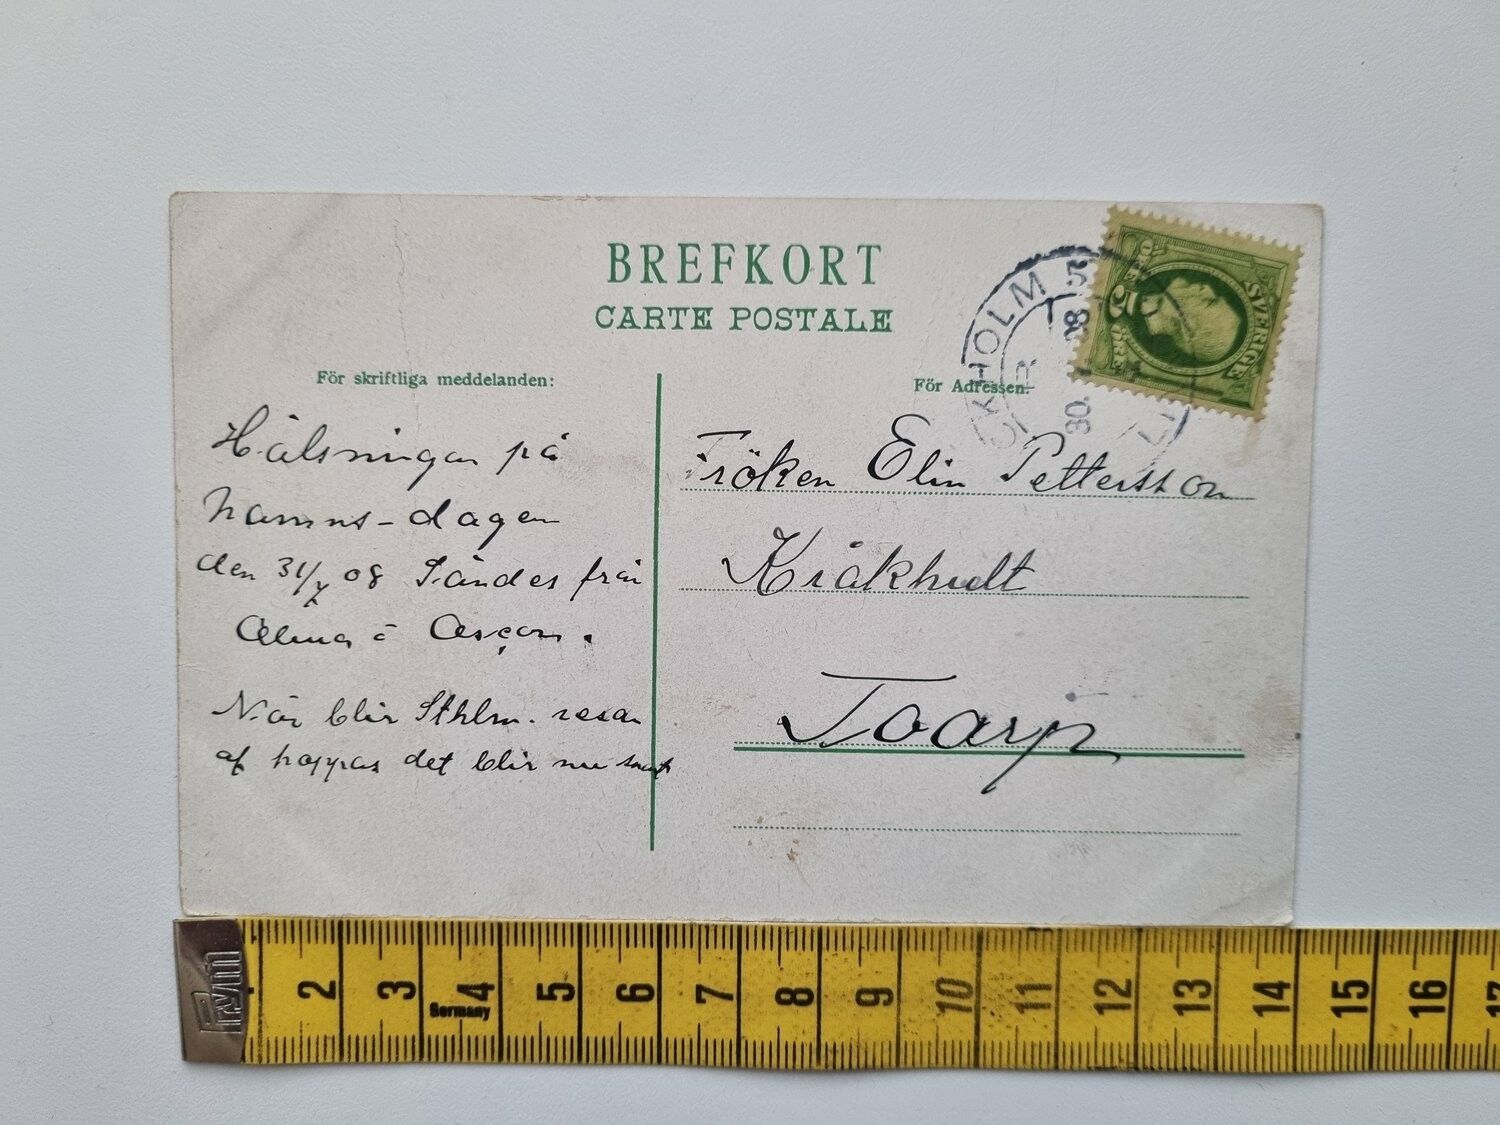 BREFKORT
CARTE POSTALE
För skriftliga meddelanden:
För Adressen:
Hälsningar på
namns-dagen
den 31/7 08 Sändes från
Alma o
När blir Sthlm. resan
af hoppas det blir nu snart
Fröken Elin Pettersson
Kråkhult
Toarp
CKHOLM 5
30.
SVERIGE
5
Prym
2 3 4 5 6 7 8 9 10 11 12 13 14 15 16 17
Germany